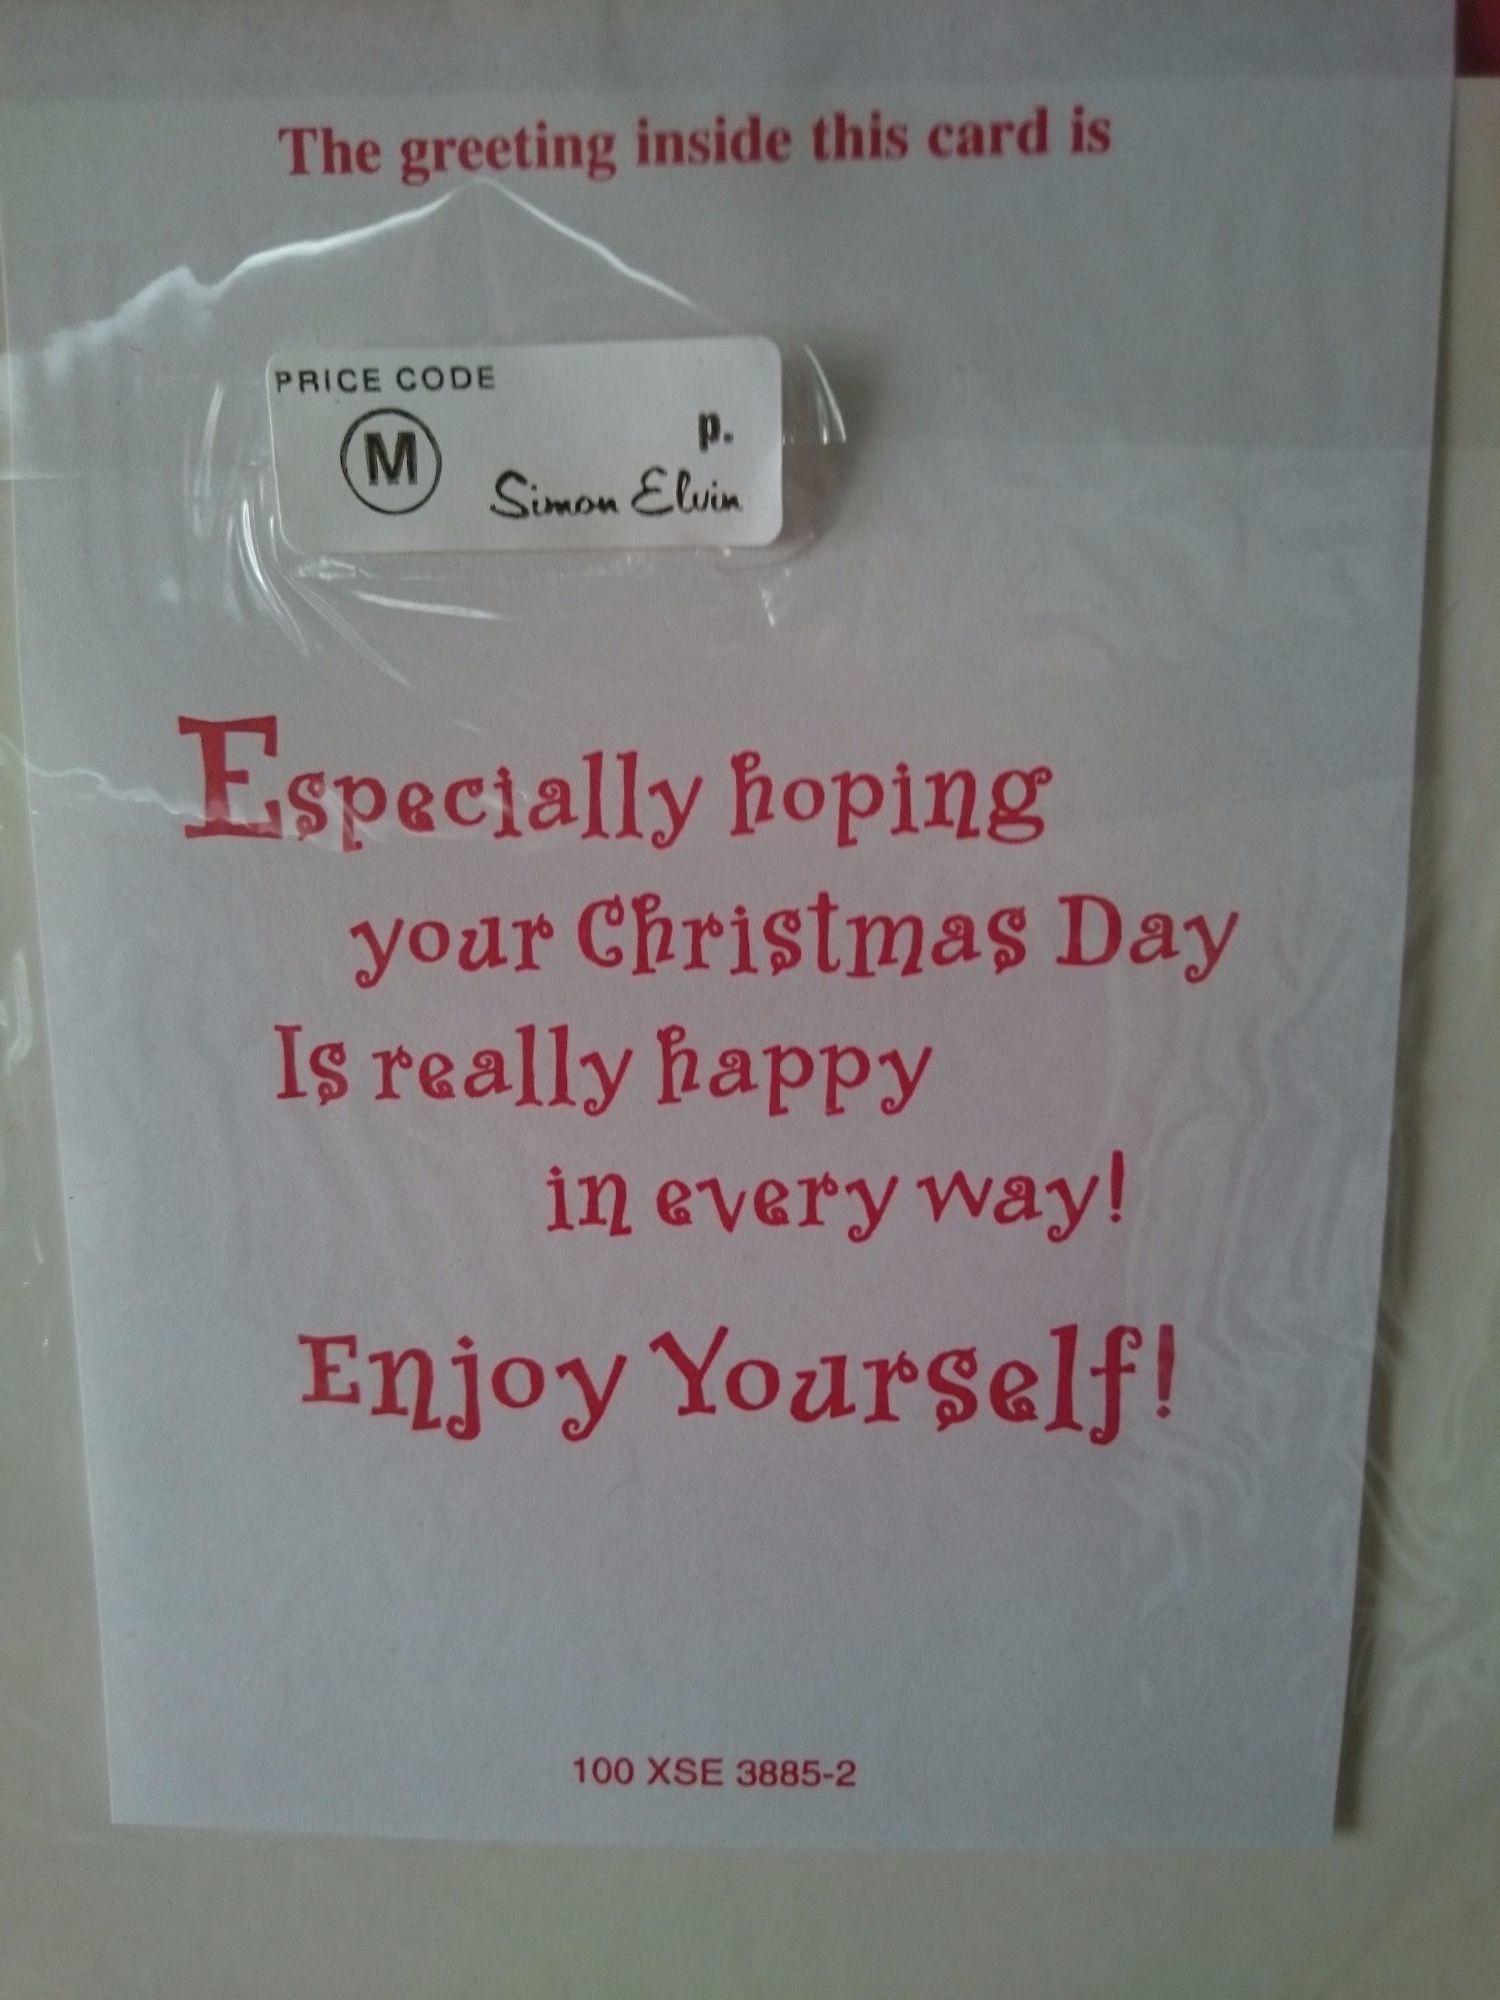 The greeting inside this card is
PRICE CODE
M
p.
Simon Elvin
Especially hoping
your Christmas Day
Is really happy
in every way!
Enjoy Yourself!
100 XSE 3885-2